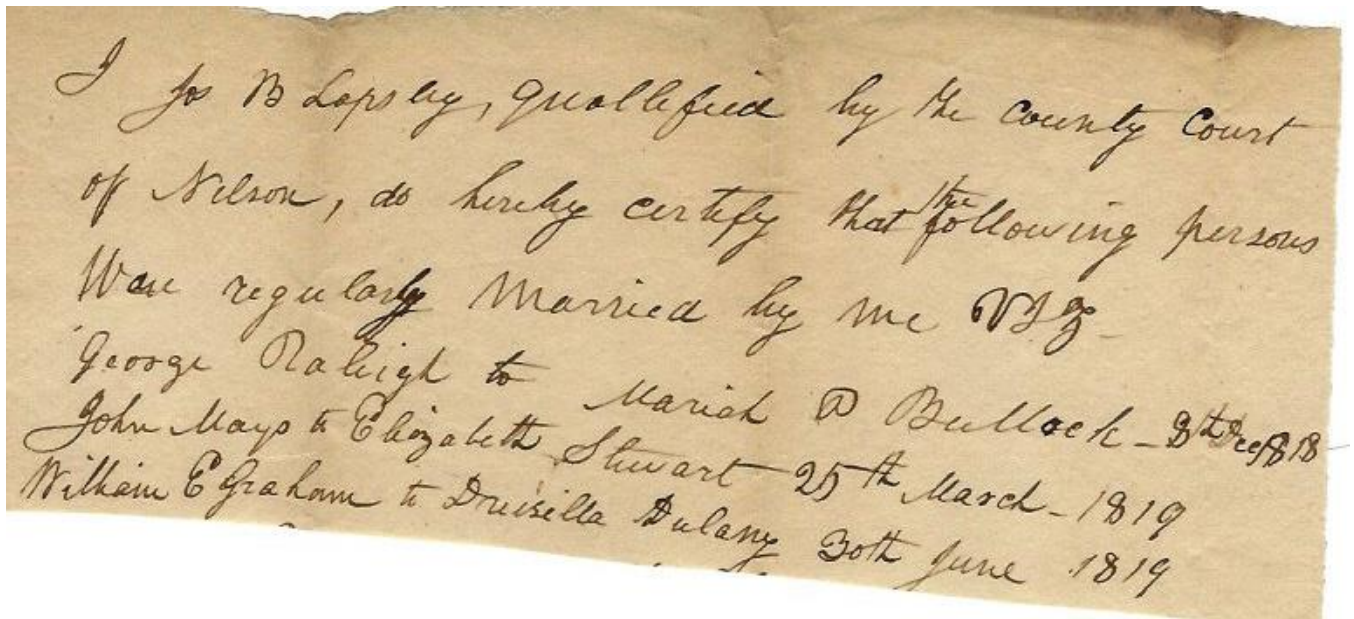 I Jos B Lapsley, quallified by the county court
of Nelson, do hereby certify that the following persons
Ware regularly Married by me Viz
George Raleigh to Mariah D Bullock - 8th Dec 1818
John Mays to Elizabeth Stuart 25th March - 1819
William E Graham to Drusilla Dulany 30th June 1819